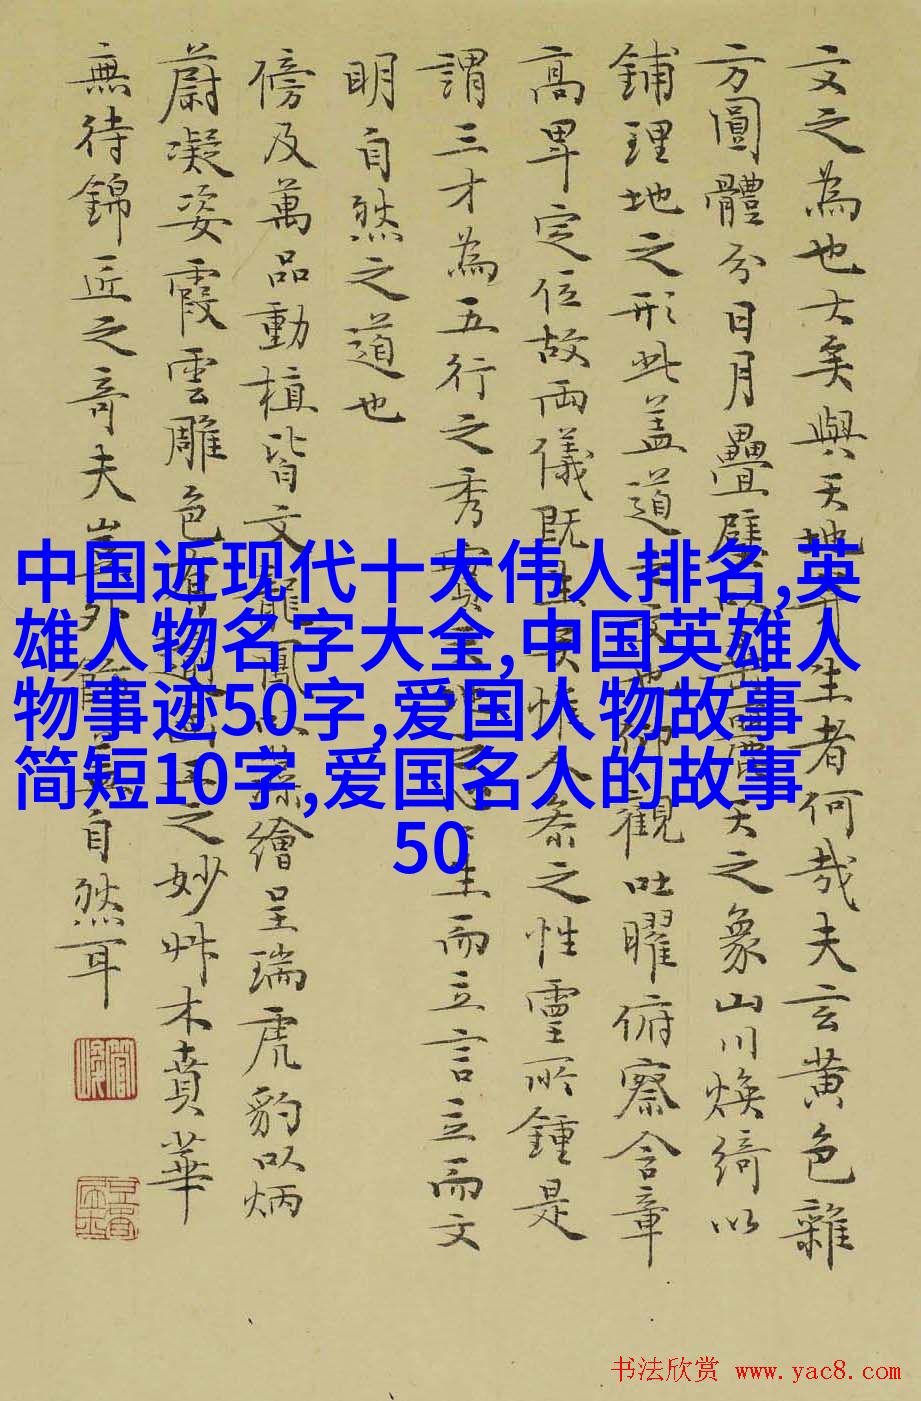 文之為也大矣與天地生者何哉夫玄黄色雜
方圓體分日月疊璧以麗天之象山川煥綺以
鋪理地之形此盖道之文也仰觀吐曜俯察含章
高卑定位故兩儀既生矣惟人叅之性靈所鍾是
謂三才為五行之秀實生而立言立而文
明自然之道也
傍及萬品動植皆文龍鳳以藻繪呈瑞虎豹以炳
蔚凝姿霞雲雕色有之妙艸木賁華
無待錦匠之奇夫豈外自然耳
中国近现代十大伟人排名,英
雄人物名字大全,中国英雄人
物事迹50字,爱国人物故事
简短10字,爱国名人的故事
50
书法欣赏 www.yac8.com